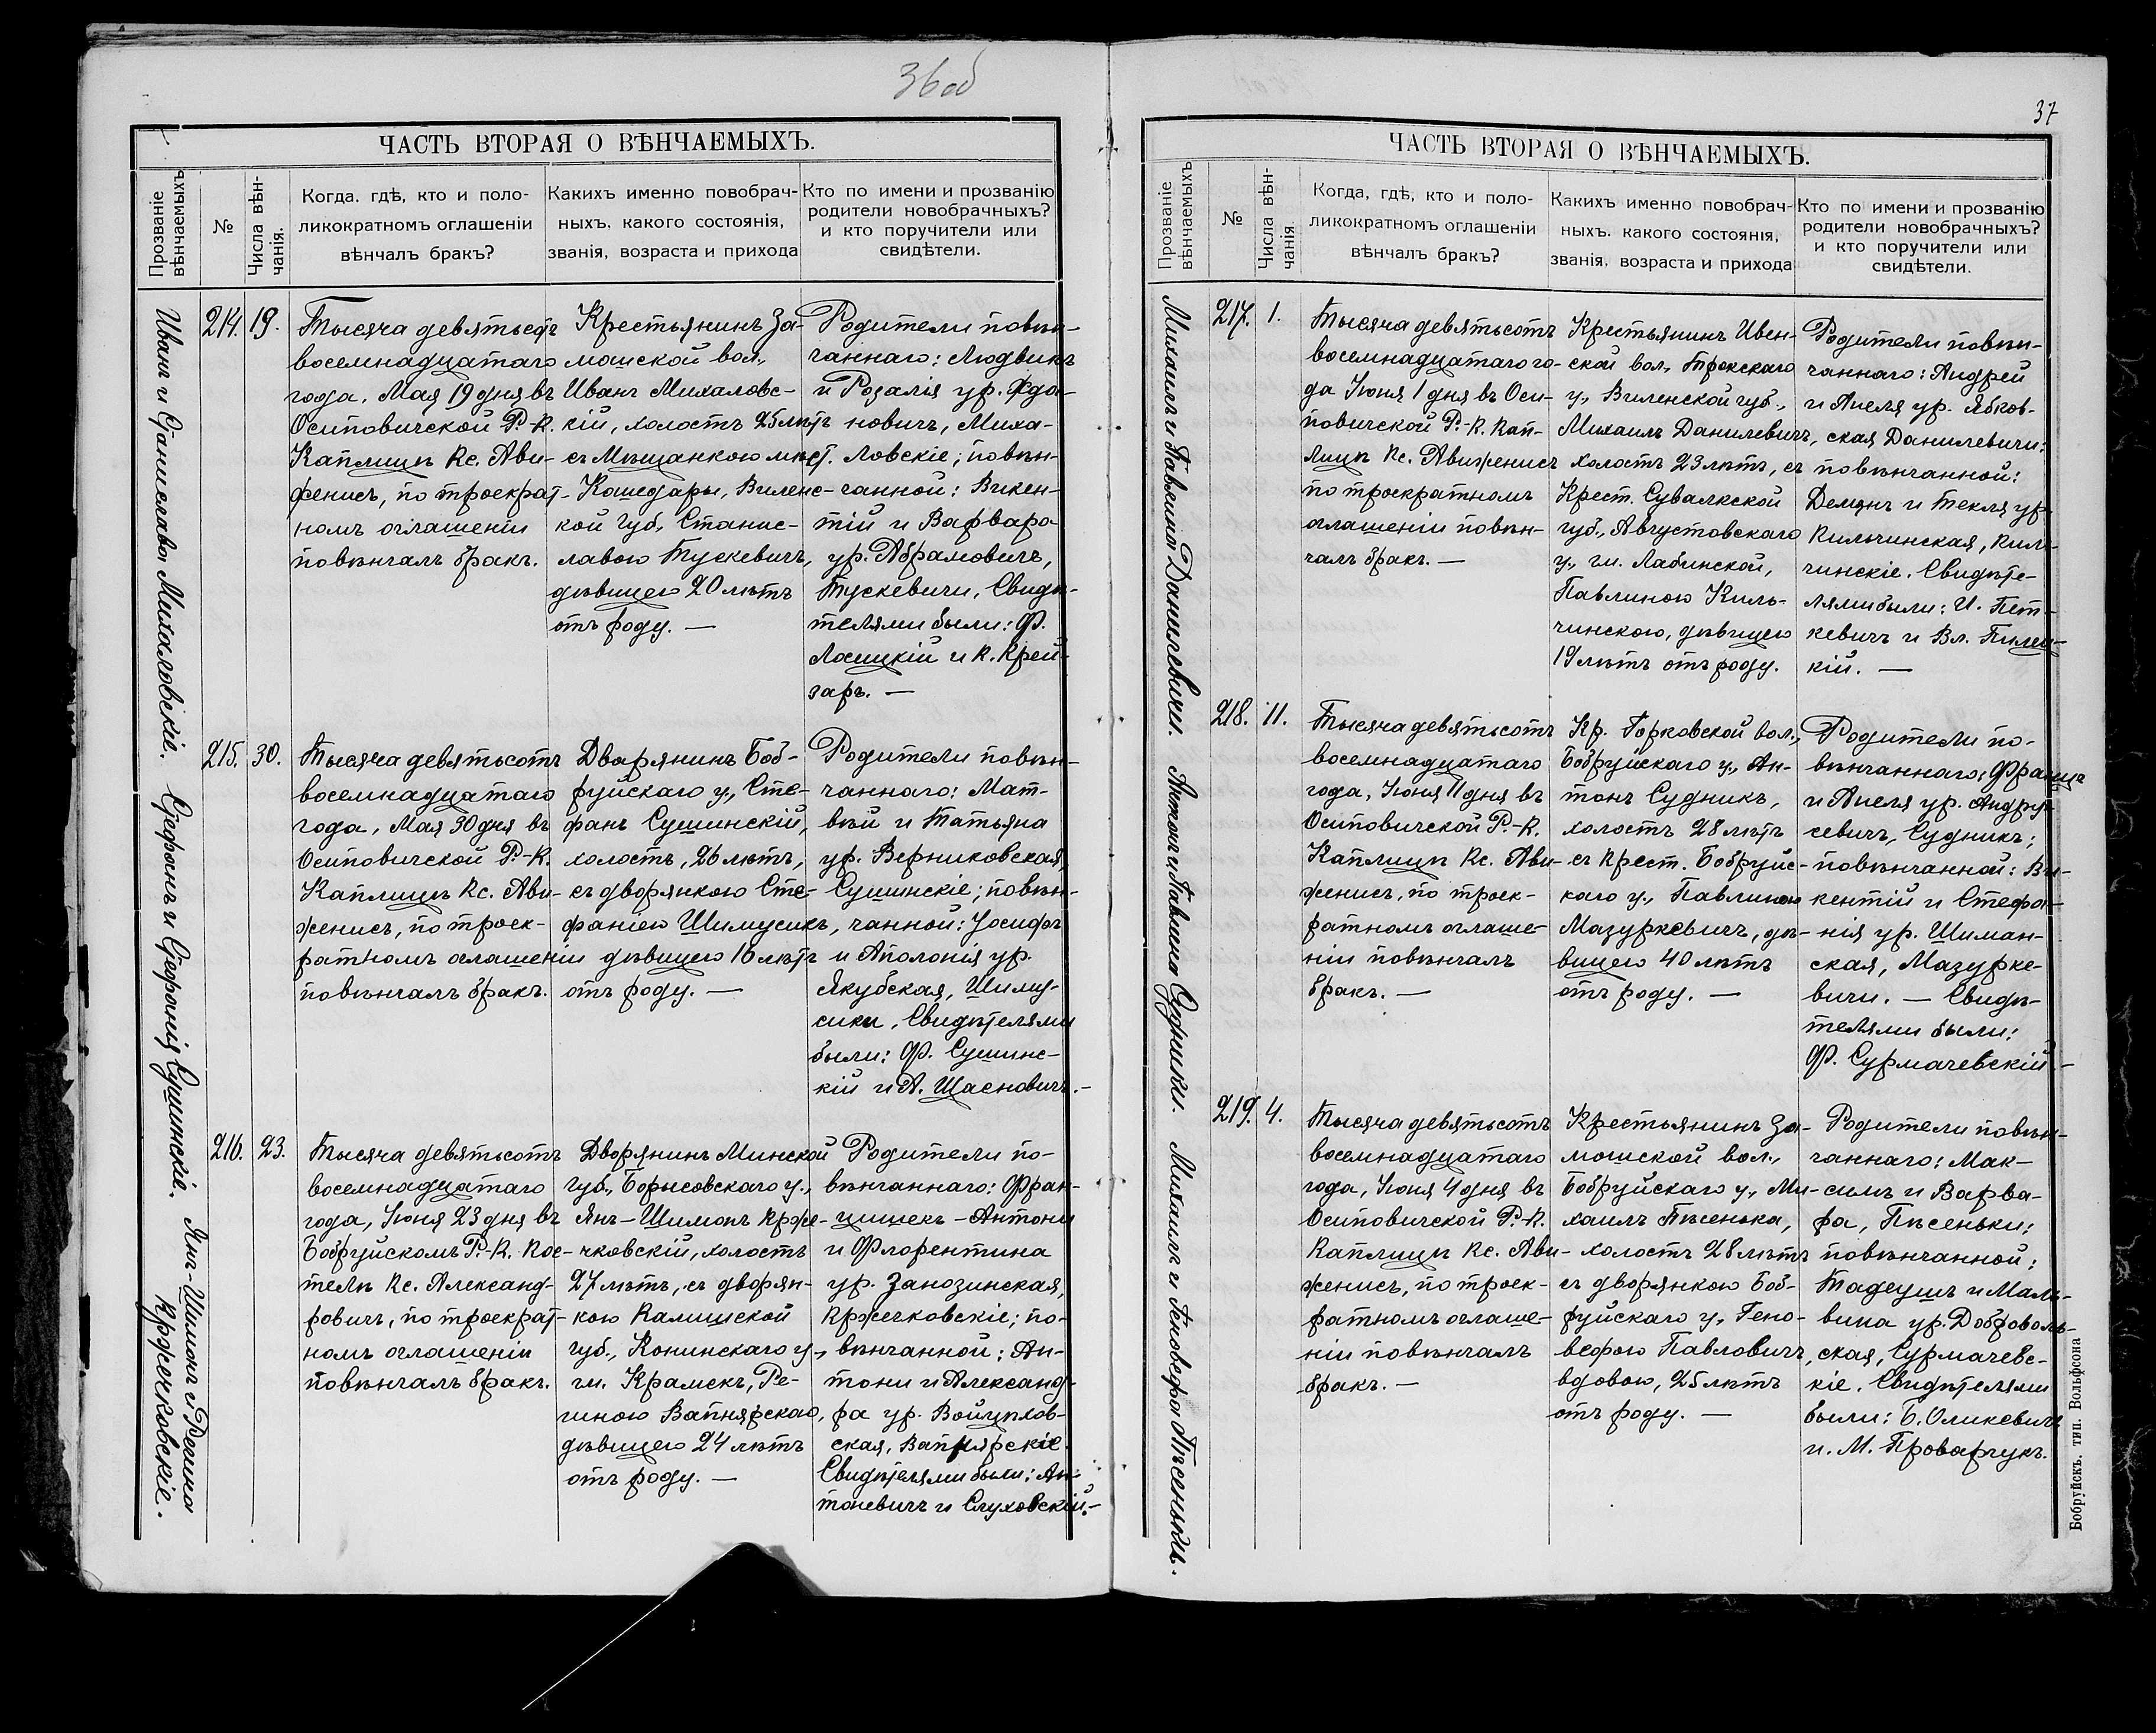 36 об
ЧАСТЬ ВТОРАЯ О ВѢНЧАЕМЫХЪ.
Прозваніе
вѣнчаемыхъ
№
Числа вѣн-
чанія.
Когда, гдѣ, кто и поло-
ликократномъ оглашеніи
вѣнчалъ бракъ?
Какихъ именно повобрач-
ныхъ, какого состоянія,
званія, возраста и прихода
Кто по имени и прозванію
родители новобрачныхъ?
и кто поручители или
свидѣтели.
Иванъ и Станислава Михаловскіе.
214.
19.
Тысяча девятьсотъ
восемнадцатаго
года, Мая 19 дня въ
Осиповичской Р.-К.
Каплицѣ Кс. Ави-
женисъ, по троекрат-
номъ оглашеніи
повѣнчалъ бракъ.
Крестьянинъ За-
мошской вол.,
Иванъ Михаловс-
кій, холостъ 25 лѣтъ
съ Мѣщанкою мѣст.
Кашедары, Виленс-
кой губ., Станис-
лавою Тускевичъ,
дѣвицею 20 лѣтъ
отъ роду. —
Родители повѣн-
чаннаго: Людвикъ
и Розалія ур. Жда-
новичъ, Миха-
ловскіе; повѣн-
чанной: Викен-
тій и Варвара
ур. Абрамовичъ,
Тускевичи, Свидѣ-
телями были: Ф.
Лосицкій и К. Крей-
заръ. —
Стефанъ и Стефанія Сушинскіе.
215.
30.
Тысяча девятьсотъ
восемнадцатаго
года, Мая 30 дня въ
Осиповичской Р.-К.
Каплицѣ Кс. Ави-
женисъ, по троек-
ратномъ оглашеніи
повѣнчалъ бракъ.
Дворянинъ Боб-
руйскаго у., Сте-
фанъ Сушинскій,
холостъ, 26 лѣтъ,
съ дворянкою Сте-
фаніею Шимусикъ,
дѣвицею 16 лѣтъ
отъ роду. —
Родители повѣн-
чаннаго: Мат-
вѣй и Татьяна
ур. Верниковская,
Сушинскіе; повѣн-
чанной: Іосифъ
и Аполонія ур.
Якубская, Шиму-
сики, Свидѣтелями
были: Ф. Сушинс-
кій и А. Щасновичъ. —
Янъ-Шимонъ и Регина
Кржечковскіе.
216.
23.
Тысяча девятьсотъ
восемнадцатаго
года, Іюня 23 дня въ
Бобруйскомъ Р.-К. Кос-
телѣ Кс. Александ-
ровичъ, по троекрат-
номъ оглашеніи
повѣнчалъ бракъ.
Дворянинъ Минской
губ., Борысовскаго у.,
Янъ-Шимонъ Крже-
чковскій, холостъ
27 лѣтъ, съ дворян-
кою Калишской
губ., Конинскаго у.,
гм. Крамскъ, Ре-
гиною Вапнярскаю,
дѣвицею 24 лѣтъ
отъ роду. —
Родители по-
вѣнчаннаго: Фран-
цишекъ-Антони
и Флорентина
ур. Занозинская,
Кржечковскіе; по-
вѣнчанной: Ан-
тони и Александ-
ра ур. Войцѣхов-
ская, Вапнярскіе.
Свидѣтелями были: Ан-
тоневичъ и Слуховскій. —
37
ЧАСТЬ ВТОРАЯ О ВѢНЧАЕМЫХЪ.
Прозваніе
вѣнчаемыхъ
№
Числа вѣн-
чанія.
Когда, гдѣ, кто и поло-
ликократномъ оглашеніи
вѣнчалъ бракъ?
Какихъ именно повобрач-
ныхъ. какого состоянія,
званія, возраста и прихода
Кто по имени и прозванію
родители новобрачныхъ?
и кто поручители или
свидѣтели.
Михаилъ и Павлина Данилевичи.
217.
1.
Тысяча девятьсотъ
восемнадцатаго го-
да Іюня 1 дня въ Оси-
повичской Р.-К. Кап-
лицѣ Кс. Авиженисъ
по троекратномъ
оглашеніи повѣн-
чалъ бракъ. —
Крестьянинъ Ивен-
ской вол., Трокскаго
у., Виленской губ.,
Михаилъ Данилевичъ,
холостъ 23 лѣтъ, съ
Крест. Сувалкской
губ., Августовскаго
у., гм. Лабинской,
Павлиною Киль-
чинскою, дѣвицею
19 лѣтъ отъ роду.
Родители повѣн-
чаннаго: Андрей
и Анеля ур. Ябков-
ская Данилевичи;
повѣнчанной:
Демянъ и Текля ур.
Кильчинская, Киль-
чинскіе. Свидѣте-
лями были: И. Пет-
кевичъ и Вл. Пилец-
кій. —
Антонъ и Павлина Судники.
218.
11.
Тысяча девятьсотъ
восемнадцатаго
года, Іюня 11 дня въ
Осиповичской Р.-К.
Каплицѣ Кс. Ави-
женисъ, по троек-
ратномъ оглаше-
ніи повѣнчалъ
бракъ. —
Кр. Горковской вол.,
Бобруйскаго у., Ан-
тонъ Судникъ,
холостъ 28 лѣтъ
съ крест. Бобруйс-
каго у., Павлиною
Мазуркевичъ, дѣ-
вицею 40 лѣтъ
отъ роду. —
Родители по-
вѣнчаннаго: Францъ
и Анеля ур. Андру-
севичъ, Судникъ;
повѣнчанной: Ви-
кентій и Стефа-
нія ур. Шиман-
ская, Мазурке-
вичи. — Свидѣ-
телями были:
Ф. Сурмачевскій —
Михаилъ и Геновефа Пѣсеньки.
219.
4.
Тысяча девятьсотъ
восемнадцатаго
года, Іюня 4 дня въ
Осиповичской Р.-К.
Каплицѣ Кс. Ави-
женисъ, по троек-
ратномъ оглаше-
ніи повѣнчалъ
бракъ. —
Крестьянинъ За-
мошской вол.,
Бобруйскаго у., Ми-
хаилъ Пѣсенька,
холостъ 28 лѣтъ
съ дворянкою Боб-
руйскаго у., Гено-
вефою Павловичъ,
вдовою, 25 лѣтъ
отъ роду. —
Родители повѣн-
чаннаго: Мак-
симъ и Варва-
ра, Пѣсеньки;
повѣнчанной:
Тадеушъ и Маль-
вина ур. Доброволь-
ская, Сурмачевс-
кіе. Свидѣтелями
были: Б. Оликевичъ
и М. Проварчукъ.
Бобруйскъ. тип. Вольфсона